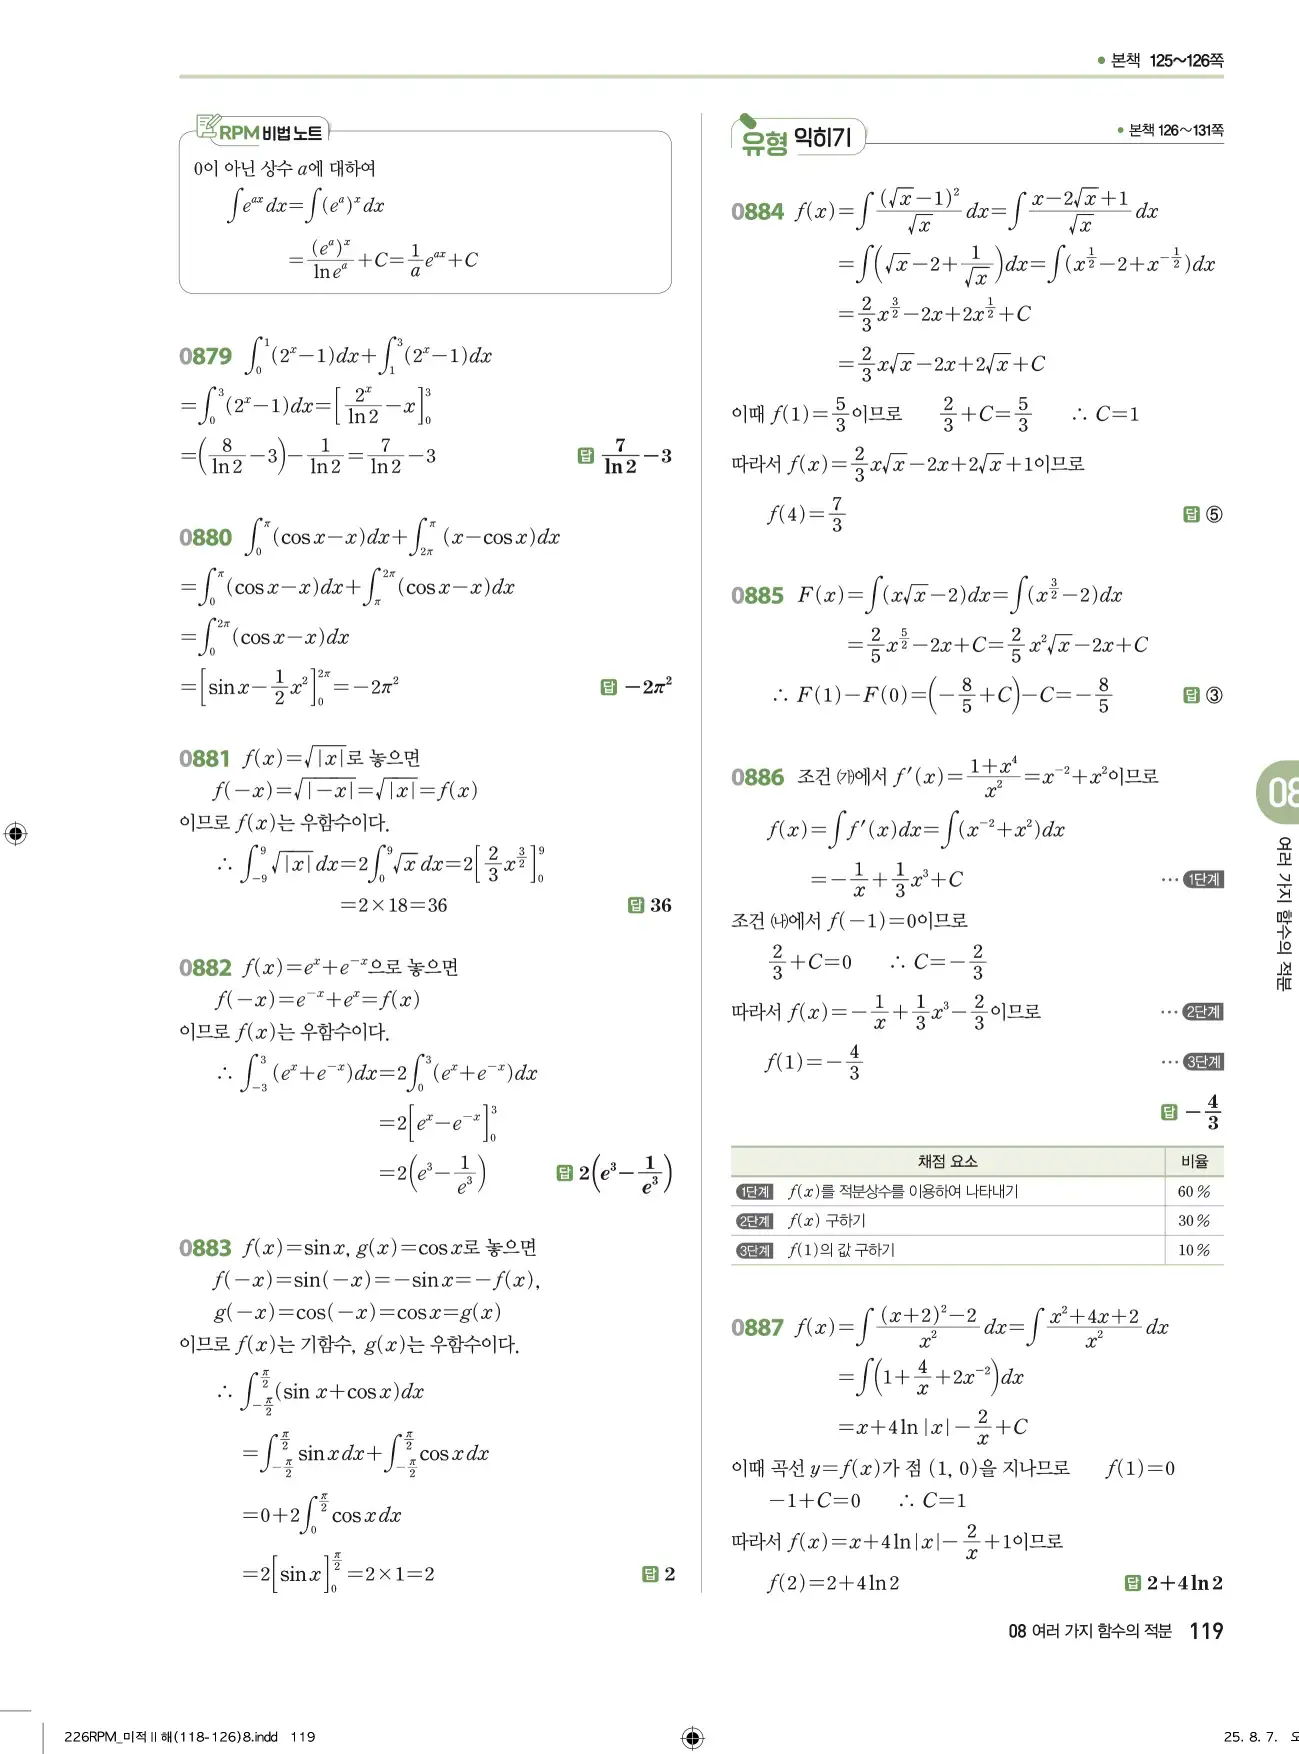 본책 125~126쪽
RPM 비법 노트
0이 아닌 상수 a에 대하여
∫e^{ax}dx=∫(e^a)^x dx
=\frac{(e^a)^x}{ln e^a}+C=\frac{1}{a}e^{ax}+C
0879 ∫_0^1(2^x-1)dx+∫_1^3(2^x-1)dx
=∫_0^3(2^x-1)dx=[\frac{2^x}{ln2}-x]_0^3
=(\frac{8}{ln2}-3)-\frac{1}{ln2}=\frac{7}{ln2}-3 답 \frac{7}{ln2}-3
0880 ∫_0^π(cos x-x)dx+∫_{2π}^π(x-cos x)dx
=∫_0^π(cos x-x)dx+∫_π^{2π}(cos x-x)dx
=∫_0^{2π}(cos x-x)dx
=[sin x-\frac{1}{2}x^2]_0^{2π}=-2π^2 답 -2π^2
0881 f(x)=√|x|로 놓으면
f(-x)=√|-x|=√|x|=f(x)
이므로 f(x)는 우함수이다.
∴ ∫_{-9}^9 √|x| dx=2∫_0^9 √x dx=2[\frac{2}{3}x^{\frac{3}{2}}]_0^9
=2×18=36 답 36
0882 f(x)=e^x+e^{-x}으로 놓으면
f(-x)=e^{-x}+e^x=f(x)
이므로 f(x)는 우함수이다.
∴ ∫_{-3}^3(e^x+e^{-x})dx=2∫_0^3(e^x+e^{-x})dx
=2[e^x-e^{-x}]_0^3
=2(e^3-\frac{1}{e^3}) 답 2(e^3-\frac{1}{e^3})
0883 f(x)=sin x, g(x)=cos x로 놓으면
f(-x)=sin(-x)=-sin x=-f(x),
g(-x)=cos(-x)=cos x=g(x)
이므로 f(x)는 기함수, g(x)는 우함수이다.
∴ ∫_{-\frac{π}{2}}^{\frac{π}{2}}(sin x+cos x)dx
=∫_{-\frac{π}{2}}^{\frac{π}{2}} sin x dx+∫_{-\frac{π}{2}}^{\frac{π}{2}} cos x dx
=0+2∫_0^{\frac{π}{2}} cos x dx
=2[sin x]_0^{\frac{π}{2}}=2×1=2 답 2
유형 익히기 본책 126~131쪽
0884 f(x)=∫\frac{(√x-1)^2}{√x}dx=∫\frac{x-2√x+1}{√x}dx
=∫(√x-2+\frac{1}{√x})dx=∫(x^{\frac{1}{2}}-2+x^{-\frac{1}{2}})dx
=\frac{2}{3}x^{\frac{3}{2}}-2x+2x^{\frac{1}{2}}+C
=\frac{2}{3}x√x-2x+2√x+C
이때 f(1)=\frac{5}{3}이므로 \frac{2}{3}+C=\frac{5}{3} ∴ C=1
따라서 f(x)=\frac{2}{3}x√x-2x+2√x+1이므로
f(4)=\frac{7}{3} 답 ⑤
0885 F(x)=∫(x√x-2)dx=∫(x^{\frac{3}{2}}-2)dx
=\frac{2}{5}x^{\frac{5}{2}}-2x+C=\frac{2}{5}x^2√x-2x+C
∴ F(1)-F(0)=(-\frac{8}{5}+C)-C=-\frac{8}{5} 답 ③
0886 조건 ㈎에서 f'(x)=\frac{1+x^4}{x^2}=x^{-2}+x^2이므로
f(x)=∫f'(x)dx=∫(x^{-2}+x^2)dx
=-\frac{1}{x}+\frac{1}{3}x^3+C … 1단계
조건 ㈏에서 f(-1)=0이므로
\frac{2}{3}+C=0 ∴ C=-\frac{2}{3}
따라서 f(x)=-\frac{1}{x}+\frac{1}{3}x^3-\frac{2}{3}이므로 … 2단계
f(1)=-\frac{4}{3} … 3단계
답 -\frac{4}{3}
채점 요소 비율
1단계 f(x)를 적분상수를 이용하여 나타내기 60 %
2단계 f(x) 구하기 30 %
3단계 f(1)의 값 구하기 10 %
0887 f(x)=∫\frac{(x+2)^2-2}{x^2}dx=∫\frac{x^2+4x+2}{x^2}dx
=∫(1+\frac{4}{x}+2x^{-2})dx
=x+4ln|x|-\frac{2}{x}+C
이때 곡선 y=f(x)가 점 (1, 0)을 지나므로 f(1)=0
-1+C=0 ∴ C=1
따라서 f(x)=x+4ln|x|-\frac{2}{x}+1이므로
f(2)=2+4ln2 답 2+4ln2
08
여러 가지 함수의 적분
08 여러 가지 함수의 적분 119
226RPM_미적Ⅱ해(118-126)8.indd 119
25. 8. 7.